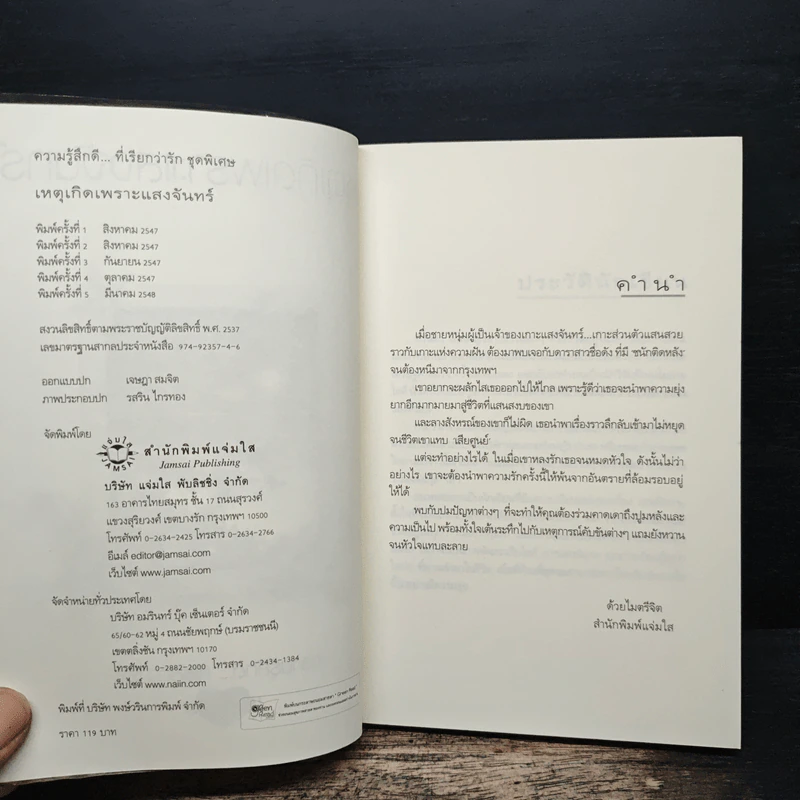 ความรู้สึกดี... ที่เรียกว่ารัก ชุดพิเศษ
เหตุเกิดเพราะแสงจันทร์
พิมพ์ครั้งที่ 1 สิงหาคม 2547
พิมพ์ครั้งที่ 2 สิงหาคม 2547
พิมพ์ครั้งที่ 3 กันยายน 2547
พิมพ์ครั้งที่ 4 ตุลาคม 2547
พิมพ์ครั้งที่ 5 มีนาคม 2548
สงวนลิขสิทธิ์ตามพระราชบัญญัติลิขสิทธิ์ พ.ศ. 2537
เลขมาตรฐานสากลประจำหนังสือ 974-92357-4-6
ออกแบบปก เจษฎา สมจิต
ภาพประกอบปก รสริน ไกรทอง
จัดพิมพ์โดย
แจ่มใส
JAMSAI
สำนักพิมพ์แจ่มใส
Jamsai Publishing
บริษัท แจ่มใส พับลิชชิ่ง จำกัด
163 อาคารไทยสมุทร ชั้น 17 ถนนสุรวงศ์
แขวงสุริยวงศ์ เขตบางรัก กรุงเทพฯ 10500
โทรศัพท์ 0-2634-2425 โทรสาร 0-2634-2766
อีเมล์ editor@jamsai.com
เว็บไซต์ www.jamsai.com
จัดจำหน่ายทั่วประเทศโดย
บริษัท อมรินทร์ บุ๊ค เซ็นเตอร์ จำกัด
65/60-62 หมู่ 4 ถนนชัยพฤกษ์ (บรมราชชนนี)
เขตตลิ่งชัน กรุงเทพฯ 10170
โทรศัพท์ 0-2882-2000 โทรสาร 0-2434-1384
เว็บไซต์ www.naiin.com
พิมพ์ที่ บริษัท พงษ์วรินการพิมพ์ จำกัด
ราคา 119 บาท
คำนำ
เมื่อชายหนุ่มผู้เป็นเจ้าของเกาะแสงจันทร์...เกาะส่วนตัวแสนสวย
ราวกับเกาะแห่งความฝัน ต้องมาพบเจอกับดาราสาวชื่อดัง ที่มี 'ชนักติดหลัง'
จนต้องหนีมาจากกรุงเทพฯ
เขาอยากจะผลักไสเธอออกไปให้ไกล เพราะรู้ดีว่าเธอจะนำพาความยุ่ง
ยากอีกมากมายมาสู่ชีวิตที่แสนสงบของเขา
และลางสังหรณ์ของเขาก็ไม่ผิด เธอนำพาเรื่องราวลึกลับเข้ามาไม่หยุด
จนชีวิตเขาแทบ 'เสียศูนย์'
แต่จะทำอย่างไรได้ ในเมื่อเขาหลงรักเธอจนหมดหัวใจ ดังนั้นไม่ว่า
อย่างไร เขาจะต้องนำพาความรักครั้งนี้ให้พ้นจากอันตรายที่ล้อมรอบอยู่
ให้ได้
พบกับปมปัญหาต่างๆ ที่จะทำให้คุณต้องร่วมคาดเดาถึงปูมหลังและ
ความเป็นไป พร้อมทั้งใจเต้นระทึกไปกับเหตุการณ์คับขันต่างๆ แถมยังหวาน
จนหัวใจแทบละลาย
ด้วยไมตรีจิต
สำนักพิมพ์แจ่มใส